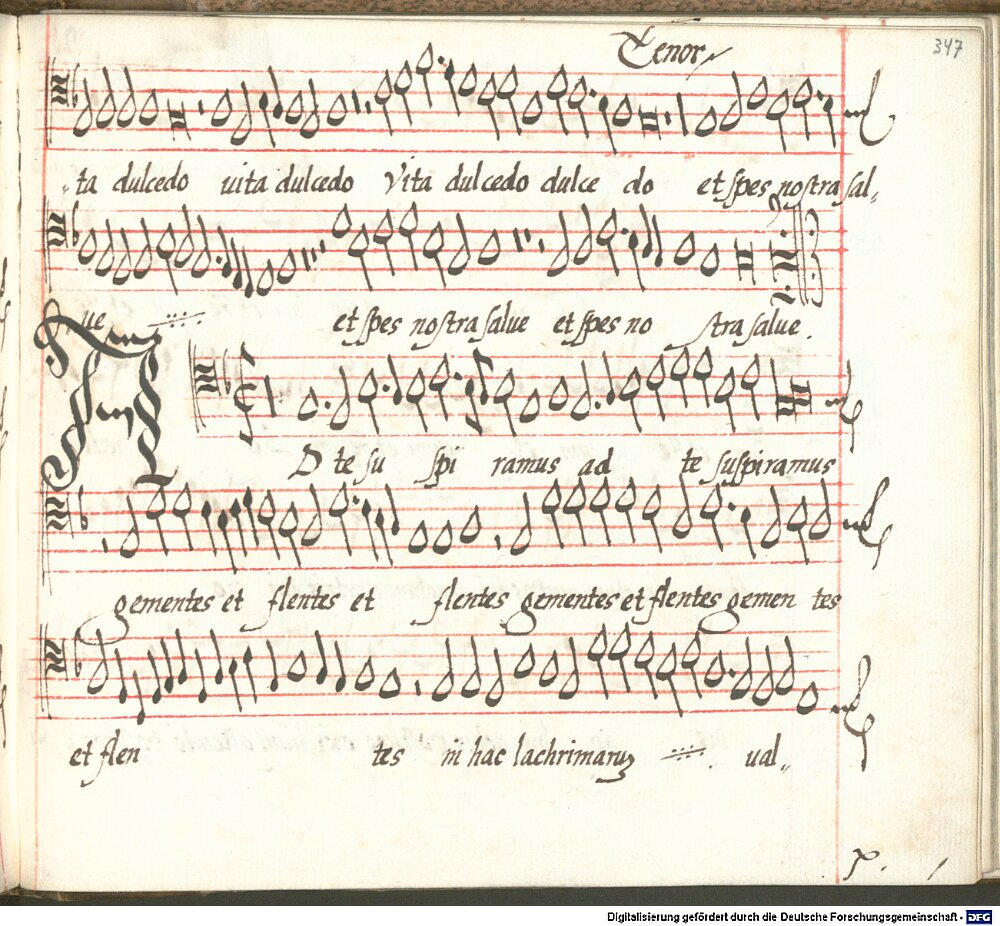 Tenor
347
ta dulcedo uita dulcedo Vita dulcedo dulce do et spes nostra sal„
ue et spes nostra salue et spes no stra salue.
AD te su spi ramus ad te suspiramus
gementes et flentes et flentes gementes et flentes gemen tes
et flen tes in hac lachrimaruʒ ual„
Digitalisierung gefördert durch die Deutsche Forschungsgemeinschaft - DFG